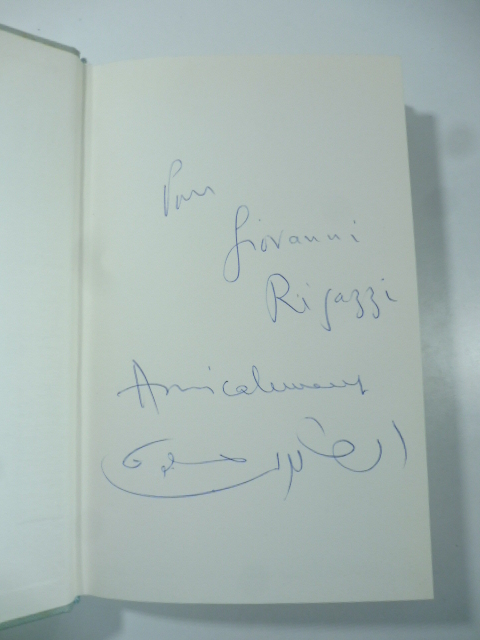 Pour
Giovanni
Rigazzi
Amicalement